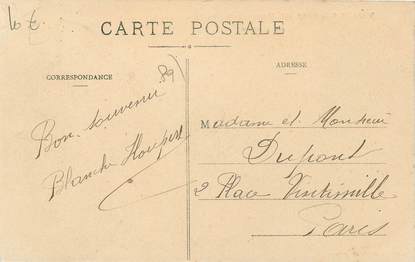 10 €
CARTE POSTALE
CORRESPONDANCE
89
Bon souvenir
Blanche
ADRESSE
Madame et Monsieur
Dupont
2 Place Vintimille
Paris